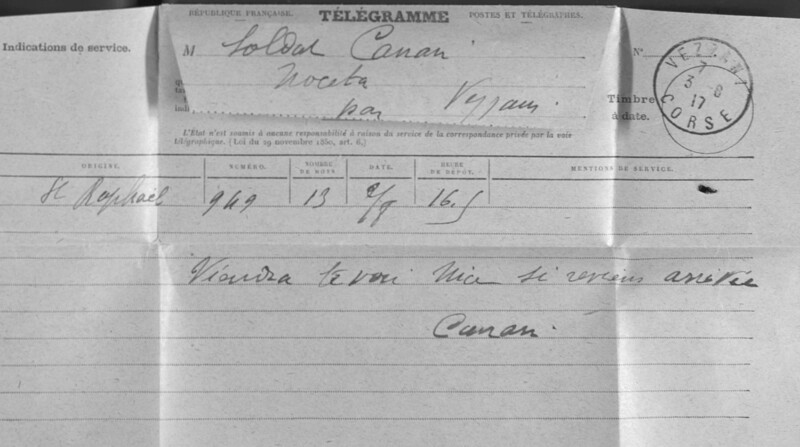 RÉPUBLIQUE FRANÇAISE. TÉLÉGRAMME POSTES ET TÉLÉGRAPHES.
Indications de service.
M Soldat Canari
Noceta
par Vezzani
N°
Timbre à date.
VEZZANI
7
3 - 8
17
CORSE
L'État n'est soumis à aucune responsabilité à raison du service de la correspondance privée par la voie
télégraphique. (Loi du 29 novembre 1850, art. 6.)
ORIGINE. NUMÉRO. NOMBRE DE MOTS. DATE. HEURE DE DÉPÔT. MENTIONS DE SERVICE.
St Raphaël 949 13 2/8 16.5
Viendra te voir Nice si reviens arrivée
Canari.